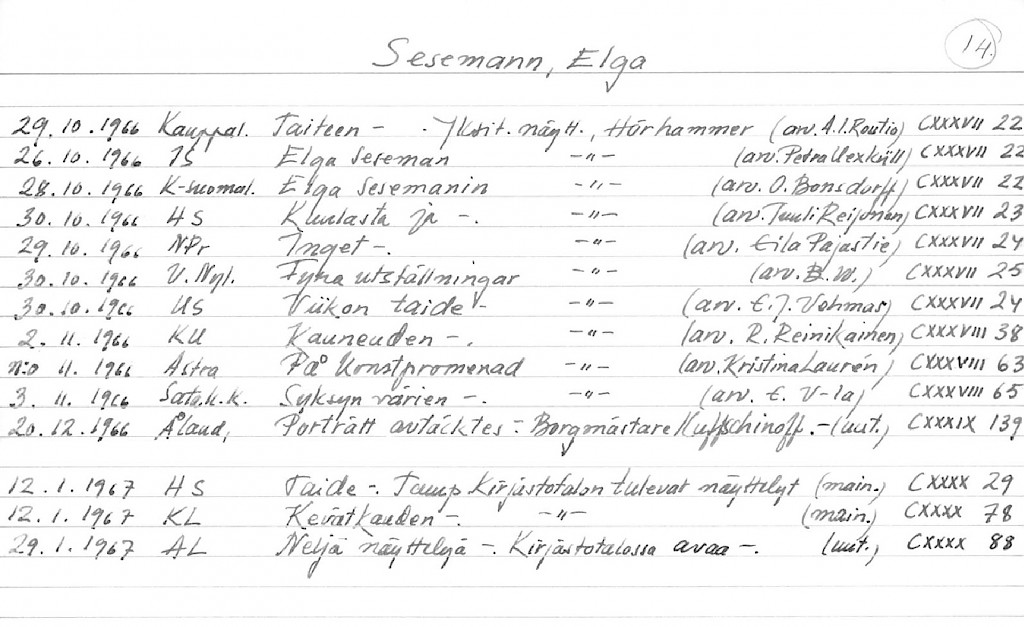 14.
Sesemann, Elga
29.10.1966 Kauppal. Taiteen - . Yksit. näytt., Hörhammer (arv. A.I. Routio) CXXXVII 22
26.10.1966 IS Elga Seseman -"- (arv. Petra Uexküll) CXXXVII 22
28.10.1966 K-suomal. Elga Sesemanin -"- (arv. O. Bonsdorff) CXXXVII 22
30.10.1966 HS Kuulasta ja -. -"- (arv. Tuuli Reijonen) CXXXVII 23
29.10.1966 NPr Inget -. -"- (arv. Eila Pajastie) CXXXVII 24
30.10.1966 V. Nyl. Fyra utställningar -"- (arv. B.W.) CXXXVII 25
30.10.1966 US Viikon taide - -"- (arv. E.J. Vehmas) CXXXVII 24
2.11.1966 KU Kauneuden -. -"- (arv. R. Reinikainen) CXXXVIII 38
n:o 11.1966 Astra På konstpromenad -"- (arv. Kristina Laurén) CXXXVIII 63
3.11.1966 Satak.k. Syksyn värien -. -"- (arv. E. V-la) CXXXVIII 65
20.12.1966 Åland, Porträtt avtäcktes - Borgmästare .- (uut.) CXXXIX 139
12.1.1967 HS Taide -. Tamp. Kirjastotalon tulevat näyttelyt (main.) CXXXX 29
12.1.1967 KL Kevätkauden -. -"- (main.) CXXXX 78
29.1.1967 AL Neljä näyttelyä -. Kirjastotalossa avaa -. (uut.) CXXXX 88